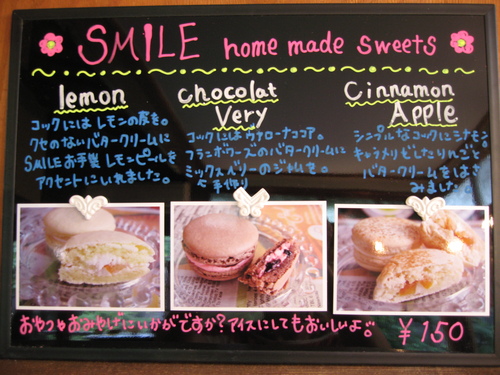 SMILE home made sweets
lemon
コックにはレモンの皮を。
クセのないバタークリームに
SMILEお手製レモンピールを
アクセントにいれました。
chocolat
Very
コックにはヴァローナココア。
フランボワーズのバタークリームに
ミックスベリーのジャムを。
手作り
Cinnamon
Apple
シンプルなコックにシナモン。
キャラメリゼしたりんごと
バタークリームをはさ
みました。
おやつやおみやげにいかがですか?アイスにしてもおいしいよ。
¥150